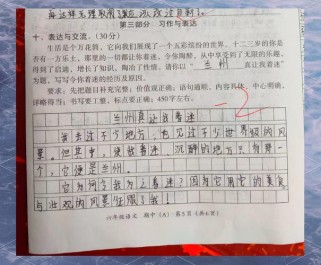 第三部分 习作与表达
十、表达与交流。(30分)
生活是个万花筒，它向我们展现了一个五彩缤纷的世界。十二三岁的你是
否有一方乐土，那里的一切都让你着迷，令你陶醉，从中享受到了无限的乐趣，
得到了启迪，增长了知识，陶冶了性情。请你以“兰州真让我着迷”
为题，写写令你着迷的经历及原因。
要求：先把题目补充完整；价值观正确；语句通顺，内容具体，中心明确，
详略得当；书写要工整，标点要正确；450字左右。
兰州真让我着迷
我去过不少地方，也见过不少世界级的风
景。但其中，使我着迷、沉醉的地方只有那一
个，它便是兰州。
它为何令我为之着迷？因为它用它的美食
与壮观的风景征服了我！
六年级语文 期中(A) 第5页(共6页)